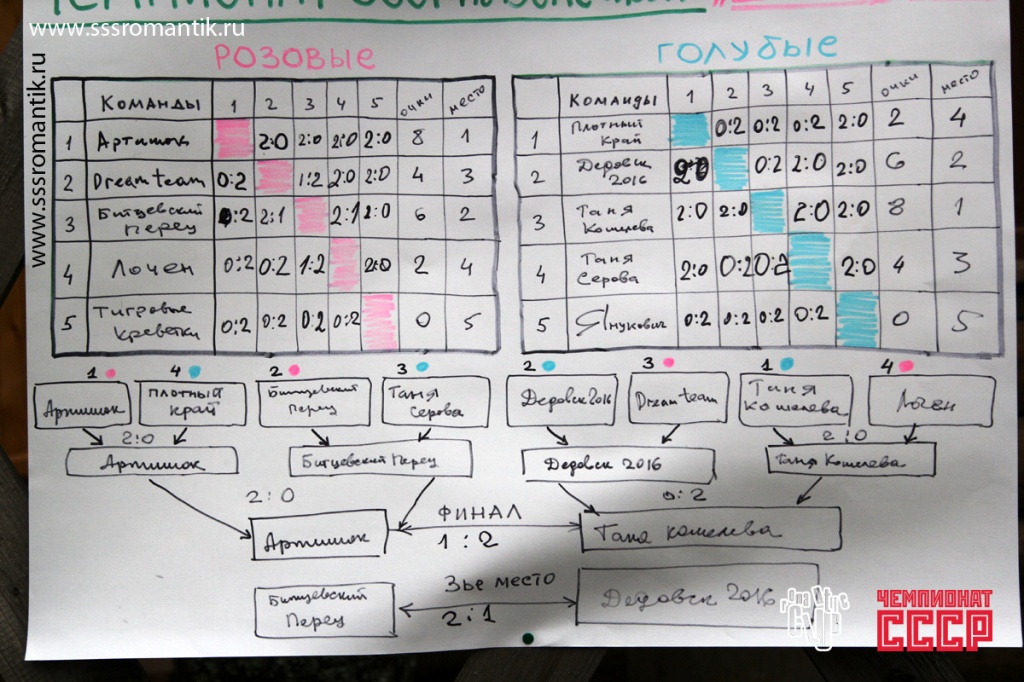 www.sssromantik.ru
www.sssromantik.ru
РОЗОВЫЕ
КОМАНДЫ 1 2 3 4 5 ОЧКИ МЕСТО
1 Артишок 2:0 2:0 2:0 2:0 8 1
2 Dream team 0:2 1:2 2:0 2:0 4 3
3 Битцевский Перец 0:2 2:1 2:1 2:0 6 2
4 Лочен 0:2 0:2 1:2 2:0 2 4
5 Тигровые креветки 0:2 0:2 0:2 0:2 0 5
ГОЛУБЫЕ
КОМАНДЫ 1 2 3 4 5 ОЧКИ МЕСТО
1 Плотный край 0:2 0:2 0:2 2:0 2 4
2 Дедовск 2016 2:0 0:2 2:0 2:0 6 2
3 Таня Кошелева 2:0 2:0 2:0 2:0 8 1
4 Таня Серова 2:0 0:2 0:2 2:0 4 3
5 Янукович 0:2 0:2 0:2 0:2 0 5
1 4 2 3 2 3 1 4
Артишок
Плотный край
Битцевский Перец
Таня Серова
Дедовск 2016
Dream team
Таня Кошелева
Лочен
2:0 2:0
Артишок Битцевский Перец Дедовск 2016 Таня Кошелева
2:0 0:2
Артишок ФИНАЛ Таня Кошелева
1:2
Битцевский Перец 3ье место Дедовск 2016
2:1
ЧЕМПИОНАТ
СССР